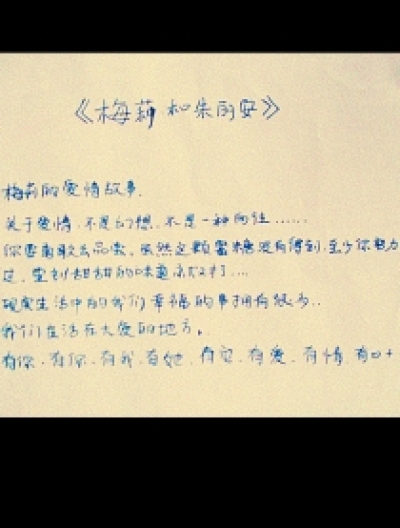 《梅莉和朱丽安》
梅莉的爱情故事.
关于爱情.不是幻想.不是一种向往......
你要勇敢去品尝.虽然这颗蜜糖没有得到.至少你努力
过.尝到甜甜的味道就好....
现实生活中的我们幸福的事拥有很多..
我们生活在大爱的地方。
有你.有你.有我.有她.有它.有爱.有情 有